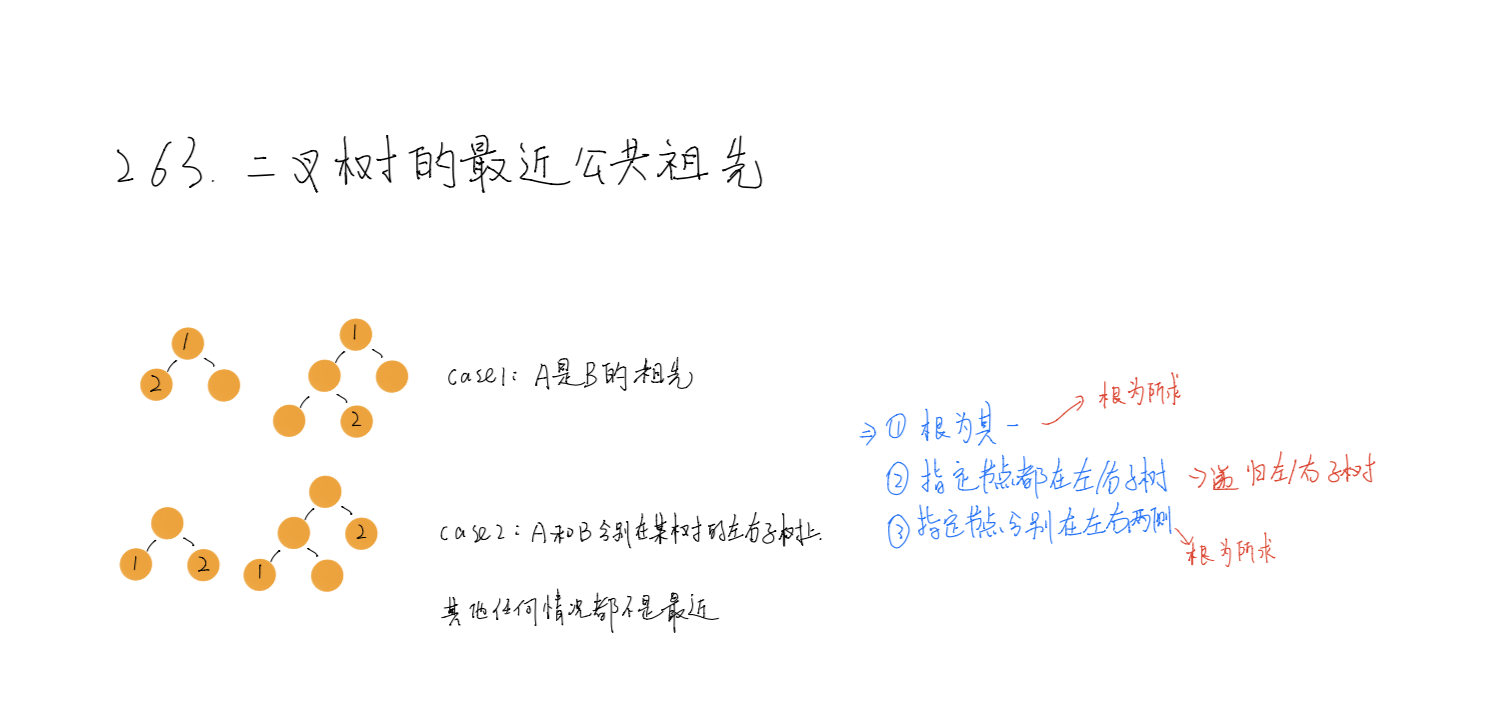 263. 二叉树的最近公共祖先
1
2
1
2
case1: A是B的祖先
1
2
2
1
case2: A和B分别在某树的左右子树上.
其他任何情况都不是最近
⇒ ① 根为其一
根为所求
② 指定节点都在左/右子树
→ 递归左/右子树
③ 指定节点分别在左右两侧
根为所求